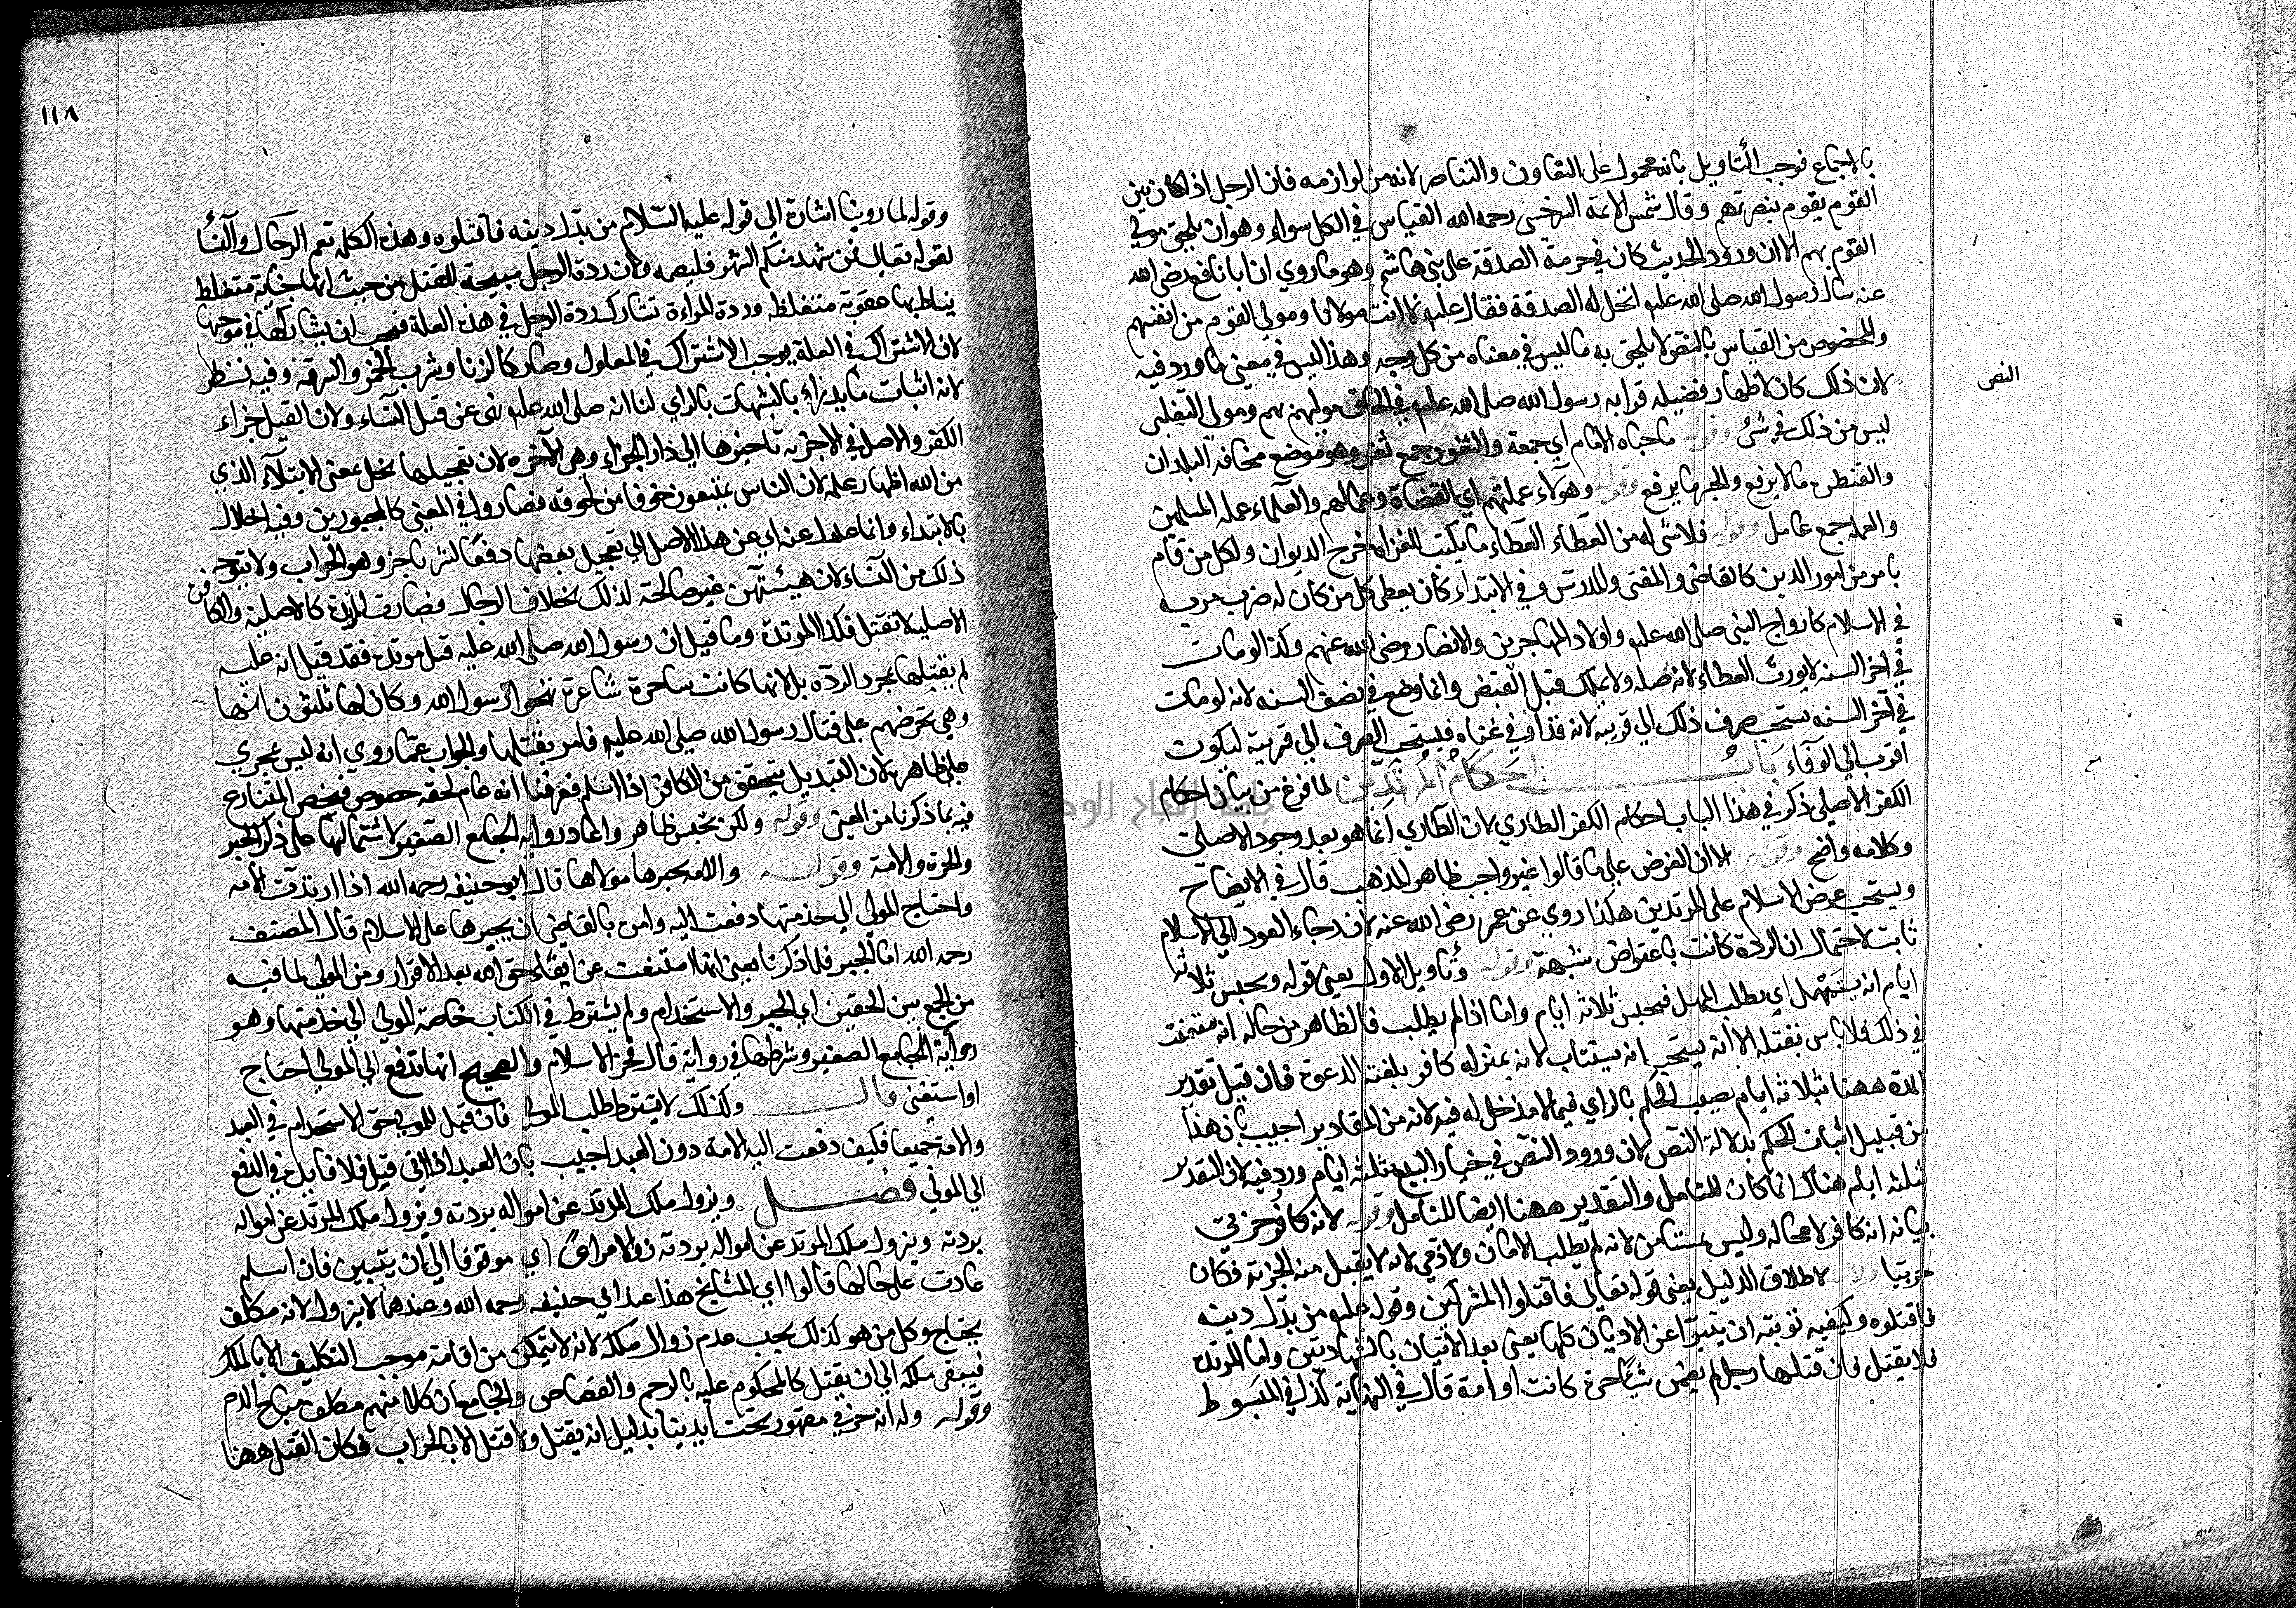 بالاجماع فوجب التاويل بانه محمول على التعاون والتناصر لانه من لوازمه فان الرجل اذا كان بين
القوم يقوم بنصرتهم وقال شمس الائمة السرخسي رحمه الله القياس في الكل سواء وهو ان يلحق مولى
القوم بهم الا ان ورود الحديث كان في حرمة الصدقة على بني هاشم وهو ما روي ان ابا نافع رضي الله
عنه سال رسول الله صلى الله عليه اتحل له الصدقة فقال عليه لا انت مولانا ومولى القوم من انفسهم
والمخصوص من القياس بالنص لا يلحق به ما ليس في معناه من كل وجه وهذا ليس في معنى ما ورد فيه
النص
لان ذلك كان لاظهار فضيلة قرابه رسول الله صلى الله عليه في الحاق موليهم بهم ومولى التغلبى
ليس من ذلك في شئ وقوله ما جباه الامام اي جمعه والثغور جمع ثغر وهو موضع مخافة البلدان
والقنطرة ما لا يرفع والجسر ما يرفع وقوله وهولاء عملتهم اي القضاة وعمالهم والعلماء عملة المسلمين
والعملة جمع عامل وقوله فلا شى له من العطاء العطاء ما يكتب للغزاة في الديوان ولكل من قام
بامر من امور الدين كالقاضى والمفتى والمدرس وفي الابتداء كان يعطى كل من كان له ضرب مزية
في الاسلام كازواج النبي صلى الله عليه واولاد المهاجرين والانصار رضى الله عنهم وكذا لو مات
في اخر السنه لا يورث العطاء لانه صله ولا يملك قبل القبض وانما وضع في نصف السنه لانه لو مات
في آخر السنه يستحب صرف ذلك الى قريبه لانه قد اوفى غناه فيستحب الصرف الى قريبه ليكون
اقرب الى الوفاء باب احكام المرتدين لما فرغ من بيان احكام
الكفر الاصلي ذكر في هذا الباب احكام الكفر الطاري لان الطاري انما هو بعد وجود الاصلى
وكلامه واضح وقوله الا ان العرض على ما قالوا غير واجب ظاهر المذهب قال في الايضاح
ويستحب عرض الاسلام على المرتدين هكذا روي عن عمر رضى الله عنه لان رجاء العود الى الاسلام
ثابت لاحتمال ان الردة كانت باعتراض شبهة وقوله وتاويل الاول يعنى قوله ويحبس ثلاثة
ايام انه يستمهل اي يطلب المهل فيحبس ثلاثه ايام واما اذا لم يطلب فالظاهر من حاله انه متعنت
في ذلك فلا باس بقتله الا انه يستحب انه يستتاب لانه بمنزله كافر بلغته الدعوة فان قيل تقدير
المدة ههنا بثلاثه ايام نصب الحكم بالراي فيما لا مدخل له فيه لانه من المقادير اجيب بان هذا
من قبيل اثبات الحكم بدلالة النص لان ورود النص في خيار البيع بثلثه ايام ورد فيه لان التقدير
بثلثه ايام هناك انما كان للتامل والتقدير ههنا ايضا للتامل وقوله لانه كافر حربي
بيانه انه كافر لا محاله وليس بمستامن لانه لم يطلب الامان ولا ذمي لانه لا يقبل منه الجزيه فكان
حربيا وقوله لاطلاق الدليل يعنى قوله تعالى فاقتلوا المشركين وقوله عليه من بدل دينه
فاقتلوه وكيفيه توبته ان يتبرا عن الاديان كلها يعنى بعد الاتيان بالشهادتين واما المرتدة
فلا يقتل فان قتلها رجل لم يضمن شيئا حرة كانت او امة قال في النهاية كذا في المبسوط
١١٨
وقوله لما روينا اشارة الى قوله عليه السلام من بدل دينه فاقتلوه وهذه الكلمه تعم الرجال والنسا
لقوله تعالى فمن شهد منكم الشهر فليصمه ولان ردة الرجل مبيحة للقتل من حيث انها جناية متغلظ
يناط بها عقوبة متغلظه وردة المراءة تشارك ردة الرجل في هذه العلة فيجب ان يشاركها في موجبها
لان الاشتراك في العلة يوجب الاشتراك في المعلول وصار كالزنا وشرب الخمر والسرقه وفيه نظر
لانه اثبات ما يدراء بالشبهات بالراي لنا انه صلى الله عليه نهى عن قتل النساء ولان القتل جزاء
الكفر والاصل في الاجزيه تاخيرها الى دار الجزاء وهي الآخره لان تعجيلها يخل بمعنى الابتلاء الذي
من الله اظهار علمه لان الناس يمتنعون خوفا من لحوقه فصاروا في المعنى كالمجبورين وفيه اخلال
بالابتداء وانما عدل عنه اي عن هذا الاصل الى تعجيل بعضها دفعا لشر ناجز وهو الحراب ولا يتوجه
ذلك من النساء لان هيئتهن غير صالحة لذلك بخلاف الرجال فصارت المرتدة كالاصلية والكافرة
الاصلية لا تقتل فكذا المرتدة وما قيل ان رسول الله صلى الله عليه قتل مرتدة فقد قيل انه عليه
لم يقتلها بمجرد الردة بل لانها كانت ساحرة شاعرة تهجو رسول الله وكان لها ثلثون ابنا
وهي تحرضهم على قتال رسول الله صلى الله عليه فامر بقتلها والجواب عما روي انه ليس بمجري
على ظاهره لان التبديل يتحقق من الكافر اذا اسلم فعرفنا انه عام لحقه خصوص فيخص المتنازع
فيه بما ذكرنا من المعنى وقوله ولكن يحبس ظاهر واعاد رواية الجامع الصغير لاشتمالها على ذكر الجبر
والحرة والامة وقوله والامه يجبرها مولاها قال ابو حنيفه رحمه الله اذا ارتدت الامه
واحتاج المولى الى خدمتها دفعت اليه وامره القاضى ان يجبرها على الاسلام قال المصنف
رحمه الله اما الجبر فلما ذكرنا يعنى انها امتنعت عن ايفاء حق الله بعد الاقرار ومن المولى لما فيه
من الجمع بين الحقين اي الجبر والاستخدام ولم يشترط في الكتاب حاجة المولى الى خدمتها وهو
رواية الجامع الصغير وشرطها في رواية قال فخر الاسلام والصحيح انها تدفع الى المولى احتاج
او استغنى قال وكذلك لا يشترط طلب المولى فان قيل للمولى حق الاستخدام في العبد
والامة جميعا فكيف دفعت اليه الامة دون العبد اجيب بان العبد اذا ابى قتل فلا فايدة في الدفع
الى المولى فصل ويزول ملك المرتد عن امواله بردته ويزول ملك المرتد عن امواله
بردته ويزول ملك المرتد عن امواله بردته زوالا مراعى اي موقوفا الى ان يتبين فان اسلم
عادت على حالها قالوا اي المشايخ هذا عند ابي حنيفه رحمه الله وعندهما لا يزول لانه مكلف
يحتاج وكل من هو كذلك يجب عدم زوال ملكه لانه لا يتمكن من اقامة موجب التكليف الا بالملك
فيبقى ملكه الى ان يقتل كالمحكوم عليه بالرجم والقصاص والجامع ان كلا منهم مكلف مباح الدم
وقوله وله انه حربي مقهور تحت ايدينا بدليل انه يقتل ولا قتل الا بالحراب فكان القتل ههنا